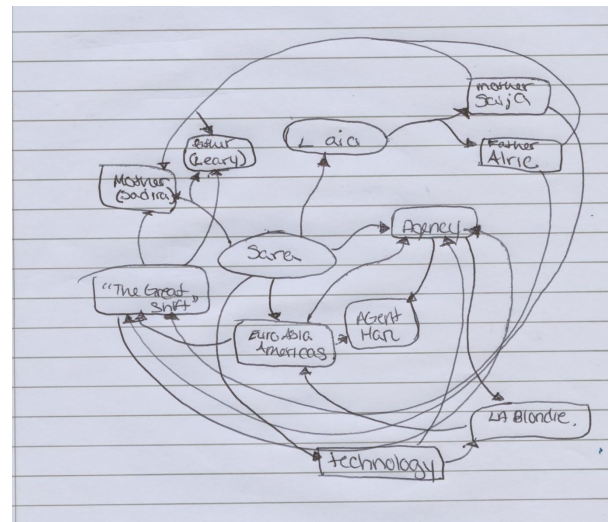 mother
Saija
Father
(Leary)
Laia
Father
Alric
Mother
(Sadira)
Agency
Sara
"The Great
Shift"
Euro Asia
Americas
Agent
Han
LA Blondie.
technology